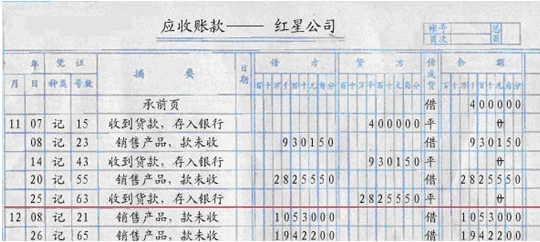 应收账款——红星公司
帐号 总
页次 页
年 凭证 摘要 日期 借方 贷方 借或贷 余额
月 日 种类 号数 百十万千百十元角分 百十万千百十元角分 百十万千百十元角分
承前页 借 400000
11 07 记 15 收到货款，存入银行 400000 平 0
08 记 23 销售产品，款未收 930150 借 930150
14 记 43 收到货款，存入银行 930150 平 0
20 记 55 销售产品，款未收 2825550 借 2825550
25 记 63 收到货款，存入银行 2825550 平 0
12 08 记 21 销售产品，款未收 1053000 借 1053000
26 记 65 销售产品，款未收 1942200 借 1942200